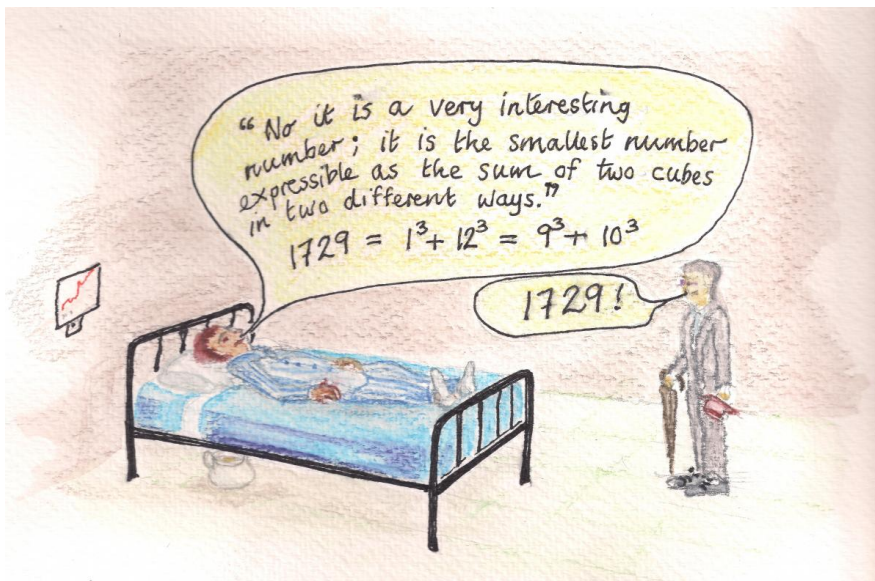 “No it is a very interesting
number; it is the smallest number
expressible as the sum of two cubes
in two different ways.”
1729 = 1³+ 12³ = 9³+ 10³
1729!